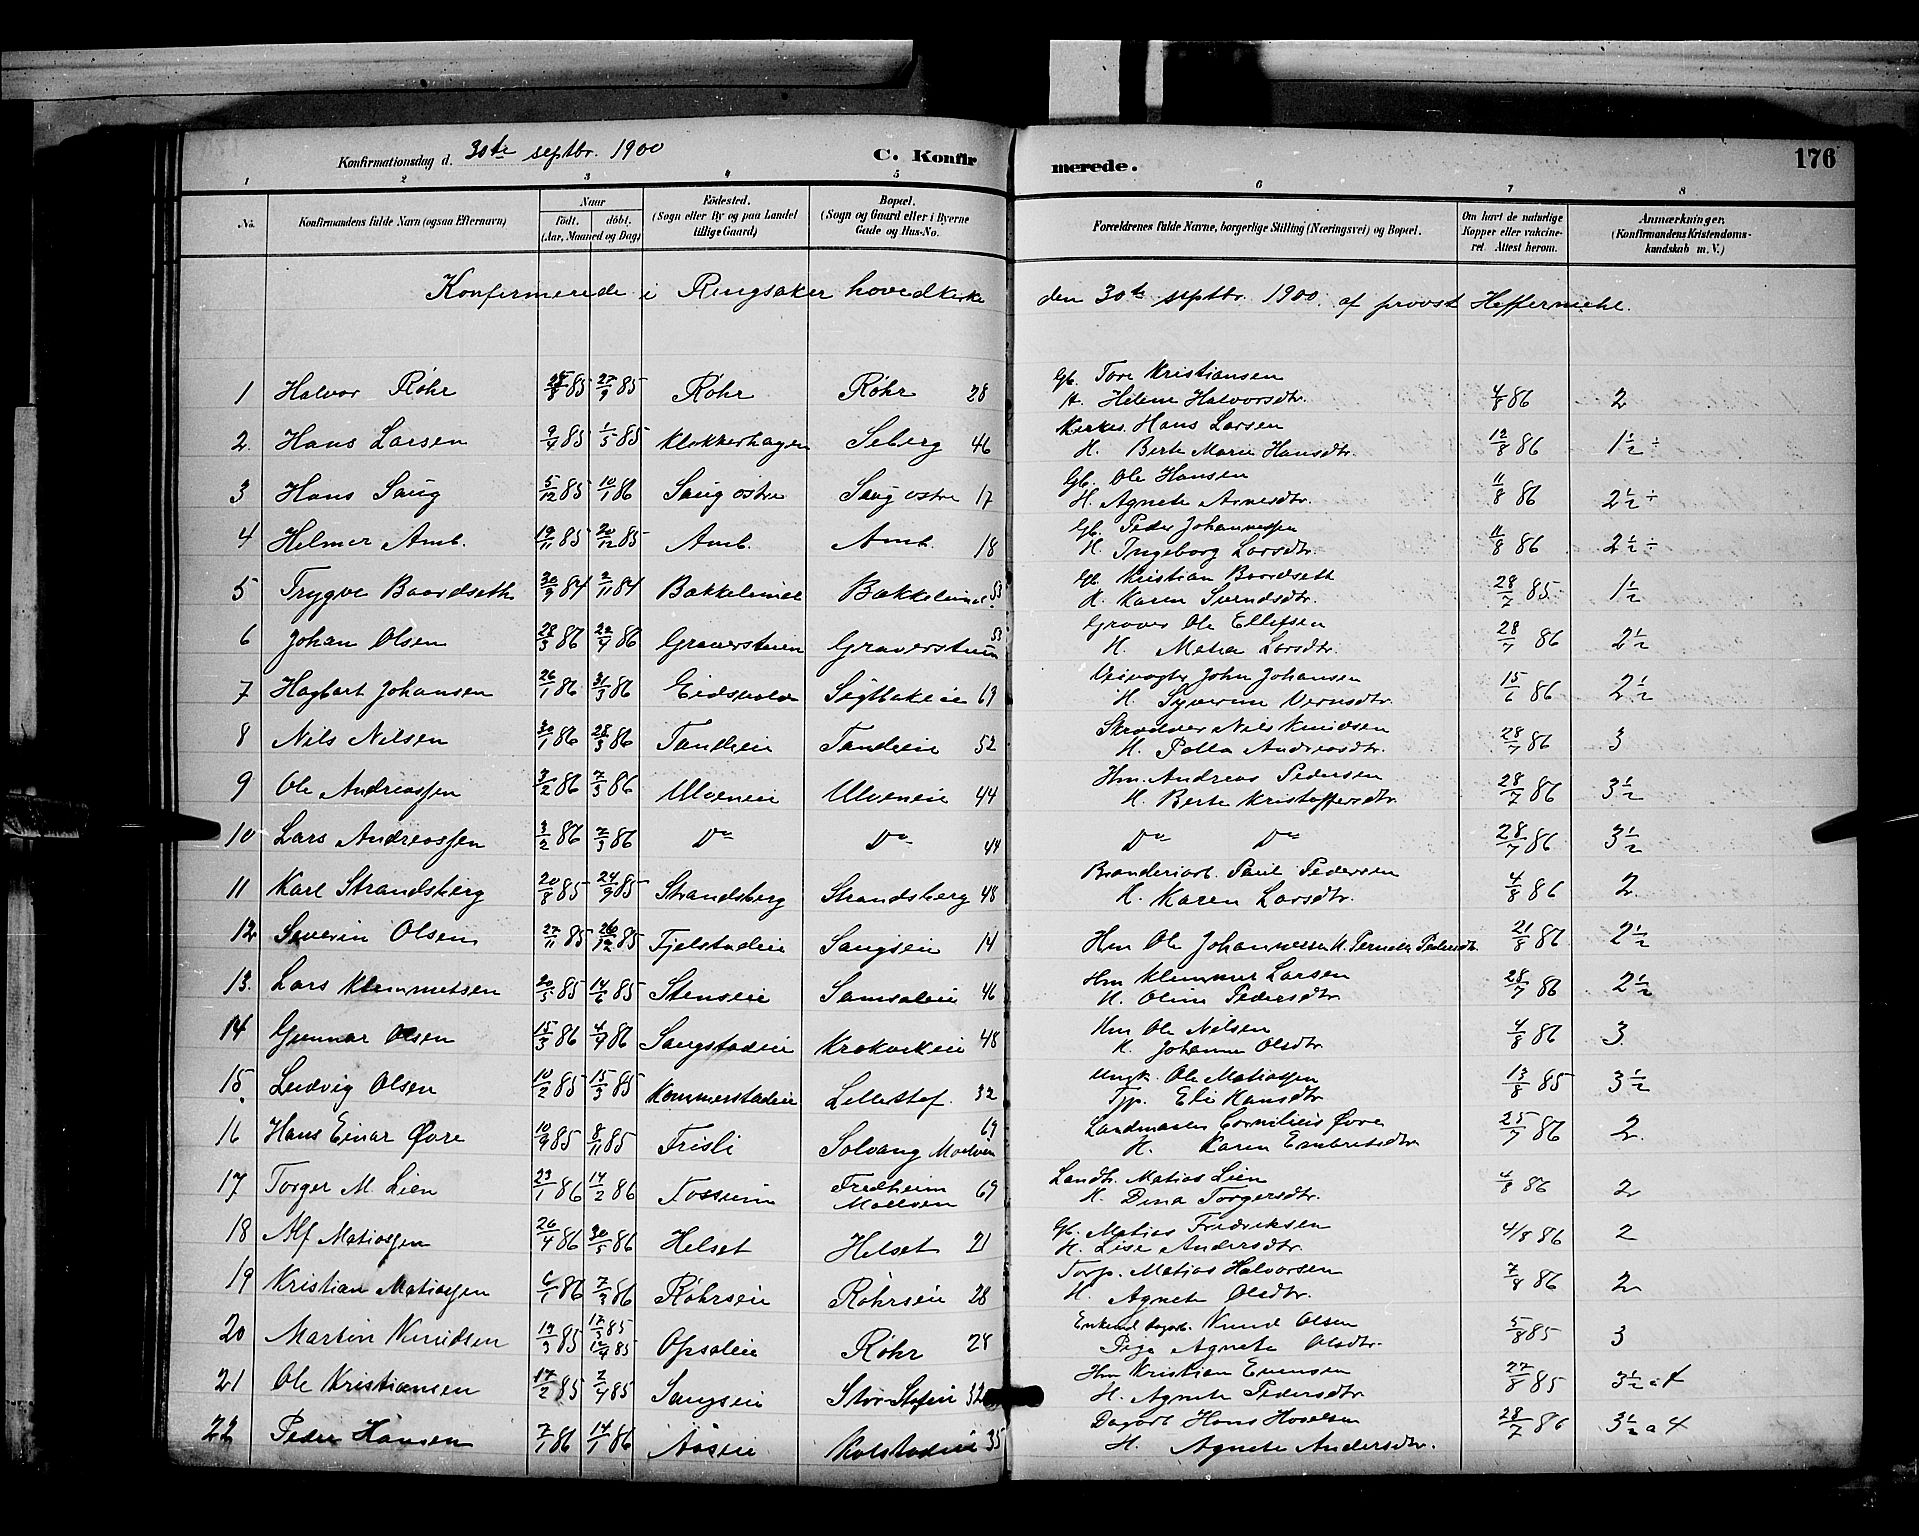 Konfirmationsdag d. 30te septbr. 1900 C. Konfir merede. 176
1 2 3 4 5 6 7 8
No. Konfirmandens fulde Navn (ogsaa Efternavn) Naar født. døbt. (Aar, Maaned og Dag) Fødested. (Sogn eller By og paa Landet tillige Gaard) Bopæl. (Sogn og Gaard eller i Byerne Gade og Hus-No. Forældrenes fulde Navne, borgerlige Stilling (Næringsvei) og Bopæl. Om havt de naturlige Kopper eller vakcineret. Attest herom. Anmærkninger. (Konfirmandens Kristendomskundskab m. V.)
Konfirmerede i Ringsaker hovedkirke den 30te septbr. 1900 af provst Heffermehl.
1 Halvor Røhr 85 27/9 85 Røhr Røhr 28 Gb. Tore Kristiansen H. Helene Halvorsdtr. 4/8 86 2
2. Hans Larsen 85 1/5 85 Klokkerhagen Seberg 46 Hans Larsen H. Berte Marie Hansdtr. 12/8 86 1½ ÷
3 Hans Saug 5/12 85 10/1 86 Saug østre Saug østre 17 Gb. Ole Hansen H. Agnete Arnesdtr. 11/8 86 2½ ÷
4 Helmer Amb. 19/11 85 20/12 85 Amb. Amb. 18 Gb. Peder Johannessen H. Ingeborg Larsdtr. 11/8 86 2½ ÷
5 Trygve Baardseth 30/9 84 2/11 84 Bakkelunet Bakkelunet 53 Gb. Kristian Baardseth H. Karen Svendsdtr. 28/7 85 1½
6 Johan Olsen 28/3 86 86 Graverstuen Graverstuen 53 Graver Ole Ellefsen H. Matea Larsdtr. 28/7 86 2½
7 Hagbart Johansen 26/1 86 31/3 86 Eidsvold 69 Veivogter John Johansen H. Syverine 15/6 86 2½
8 Nils Nilsen 30/1 86 28/3 86 Tandeeie Tandeeie 52 Skrædder Nils Knudsen H. Andreasdtr. 28/7 86 3
9 Ole Andreassen 3/2 86 7/3 86 Ulveneie Ulveneie 44 Hm. Andreas Pedersen H. Berte Kristoffersdtr. 28/7 86 3½
10 Lars Andreassen 3/2 86 7/3 86 Do Do 44 Do Do 28/7 86 3½
11 Karl Strandsberg 20/8 85 24/9 85 Strandsberg Strandsberg 48 Brænderiarb. Paul Pedersen H. Karen Larsdtr. 4/8 86 2.
12 Severin Olsen 27/11 85 26/12 85 Fjelstadeie Saugseie 14 Hm Ole Johannessen H. Pernille Pedersdtr. 21/8 86 2½
13. Lars Klemmetsen 20/5 85 14/6 85 Stenseie Samsaleie 46 Hm Klemmet Larsen H. Oline Pedersdtr. 28/7 86 2½
14 Gunnar Olsen 15/3 86 4/4 86 Saugstadeie Krokvikeie 48 Hm Ole Nilsen H. Johanne Olsdtr. 4/8 86 3.
15. Ludvig Olsen 10/2 85 15/3 85 Kommerstadeie Lillestof. 32 Ungk. Ole Matiassen Tjp. Eli Hansdtr. 13/8 85 3½
16 Hans Einar Øvre 10/9 85 8/11 85 Frisli Solvang Moelven 69 Landmaaler Cornilius Øvre H. Karen Embretsdtr. 25/7 86 2.
17 Torger M. Lien 23/1 86 14/2 86 Fossum Fredheim Moelven 69 Landh. Matias Lien H. Dina Torgersdtr. 4/8 86 2
18 Alf Matiassen 26/4 86 30/5 86 Helset Helset 21 Gb. Matias Fredriksen H. Lise Andersdtr. 4/8 86 2
19 Kristian Matiassen 6/1 86 7/3 86 Røhrseie Røhrseie 28 Torp. Matias Halvorsen H. Agnete Olsdtr. 7/8 86 2
20 Martin Knudsen 19/3 85 85 85 Opsaleie Røhr 28 Enkemd dagarb. Knud Olsen Pige Agnete Olsdtr. 5/8 85 3
21 Ole Kristiansen 17/2 85 2/4 85 Saugseie Stor-Stofeie 32 Hm Kristian Evensen H. Agnete Pedersdtr. 27/8 85 3½ a 4
22 Peder Hansen 7/1 86 14/1 86 Aaseie Kolstadeie 35 Dagarb Hans H. Agnete Andersdtr. 28/7 86 3½ a 4